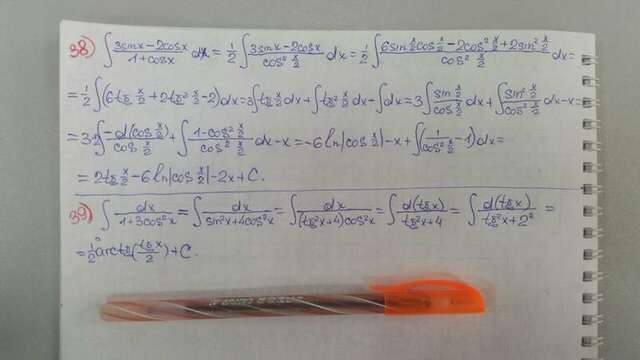 38) ∫ (3sinx-2cosx)/(1+cosx) dx = 1/2 ∫ (3sinx-2cosx)/(cos² x/2) dx = 1/2 ∫ (6sin x/2 cos x/2 - 2cos² x/2 + 2sin² x/2)/(cos² x/2) dx =
= 1/2 ∫ (6tg x/2 + 2tg² x/2 - 2)dx = 3∫ tg x/2 dx + ∫ tg² x/2 dx - ∫ dx = 3 ∫ (sin x/2)/(cos x/2) dx + ∫ (sin² x/2)/(cos² x/2) dx - x =
= 3·2 ∫ (-d(cos x/2))/(cos x/2) + ∫ (1-cos² x/2)/(cos² x/2) dx - x = -6 ln|cos x/2| - x + ∫ (1/(cos² x/2) - 1)dx =
= 2tg x/2 - 6 ln|cos x/2| - 2x + C.
39) ∫ dx/(1+3cos²x) = ∫ dx/(sin²x+4cos²x) = ∫ dx/((tg²x+4)cos²x) = ∫ d(tgx)/(tg²x+4) = ∫ d(tgx)/(tg²x+2²) =
= 1/2 arctg(tgx/2) + C.